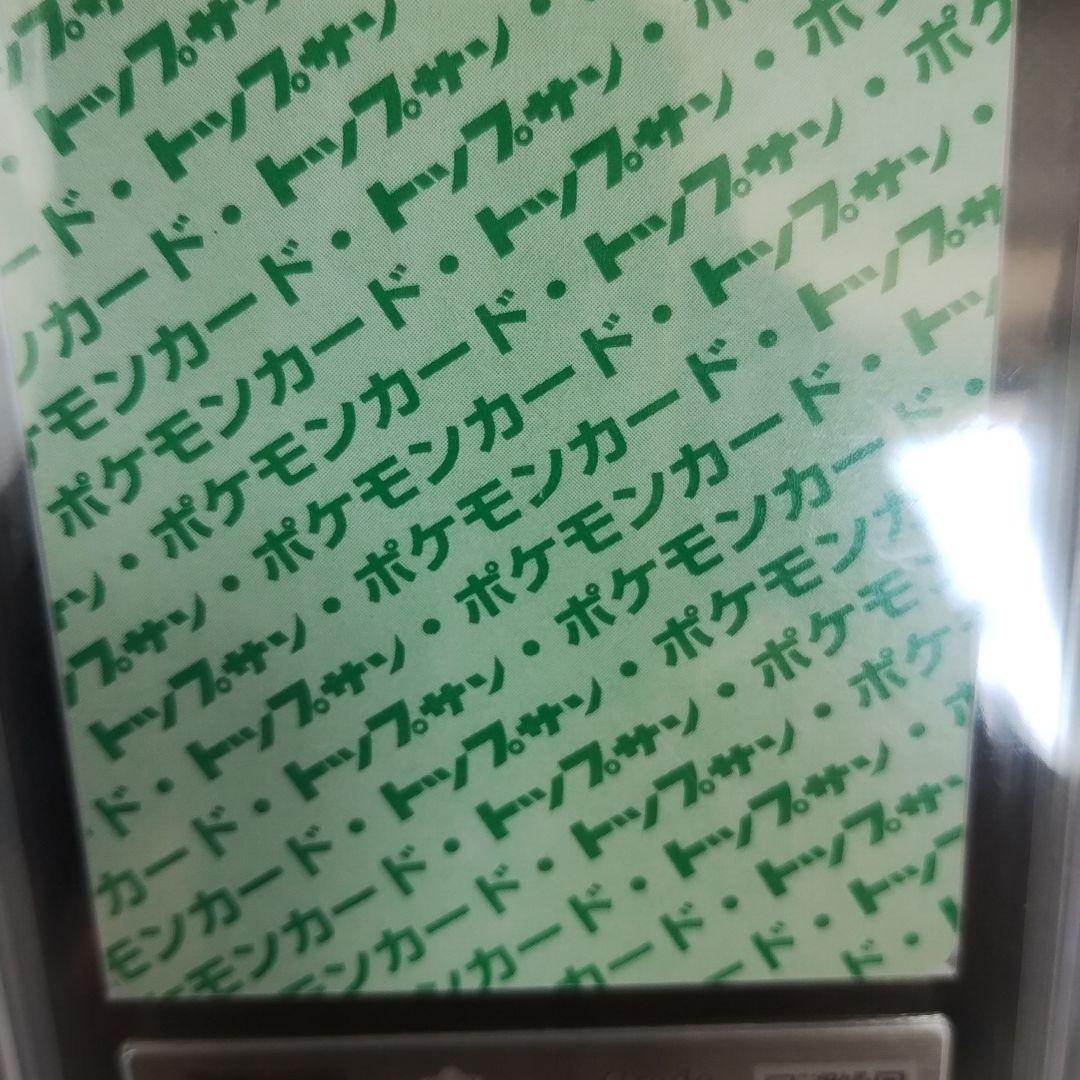 トップサ
ード・トップサ
ンカード・トップサン・
ケモンカード・トップサン・ポ
ポケモンカード・トップサン・ポ
サン・ポケモンカード・トップサン・ポケ
プサン・ポケモンカード・トップサン・
トップサン・ポケモンカード・トップサ
ド・トップサン・ポケモンカード・トッ
カード・トップサン・ポケモンカード・
モンカード・トップサン・ポケモンカ
ケモンカード・トップサン・ポケモン
ンカード・トップサン・ポケ
ンカード・トップサン・ポ
カード・トップサン
ード・トッ
ド・